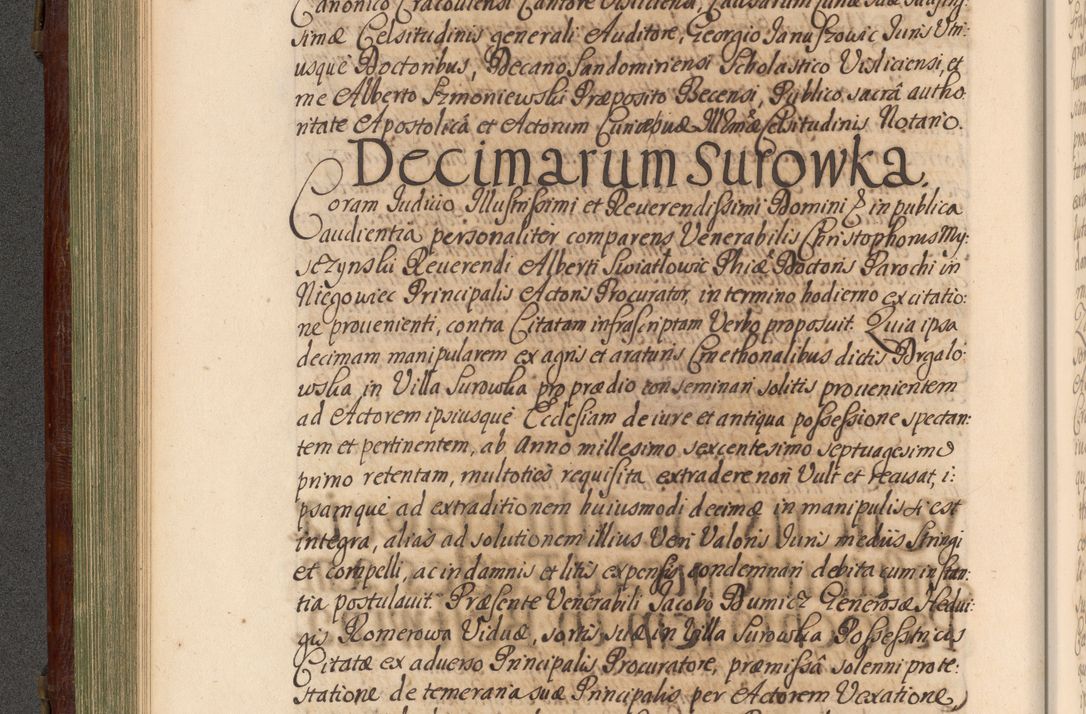 Canonico Cracouiensi Cantore Visliciensi, Causarum Curiæ suæ
simæ Celsitudinis generali Auditore, Georgio Januszowic Juris Vtri:
usque Doctoribus, Decano Sandomiriensi Scholastico Visliciensi, et
me Alberto Szmoniewski Præposito Becensi, Publico sacrâ autho
ritate Apostolicâ et Actorum Curiæ suæ Celsitudinis Notario.
Decimarum Surowka.
Coram Judicio Illustrissimi et Reverendissimi Domini in publica
audientiâ personaliter comparens Venerabilis Christophorus My:
szczynski Reuerendi Alberti Swiatlowic Phiæ Doctoris Parochi in
Niegowiec Principalis Actoris Procurator, in termino hodierno ex citatio:
ne prouenienti, contra Citatam infrascriptam Verbo proposuit. Quia ipsa
decimam manipularem ex agris et araturis Cmethonalibus dictis Drgalo:
wska in Villa Surowka pro prædio conseminari solitis prouenientem
ad Actorem ipsiusque Ecclesiam de iure et antiqua possessione spectan:
tem et pertinentem, ab Anno millesimo sexcentesimo septuagesimo
primo retentam, multoties requisita extradere non Vult et recusat, i:
psamque ad extraditionem huiusmodi decimæ in manipulis si est
integra, alias ad solutionem illius Veri Valoris Juris mediis stringi
et compelli, ac in damnis et litis expensis condemnari debita cum instan:
tia postulauit. Præsente Venerabili Jacobo Dumicz Generosæ Hedui:
gis Romerowa Viduæ, sortis suæ in Villa Surowka Possessricis
Citatæ ex aduerso Principalis Procuratore, præmissâ solenni prote:
statione de temeraria suæ Principalis per Actorem Vexatione,